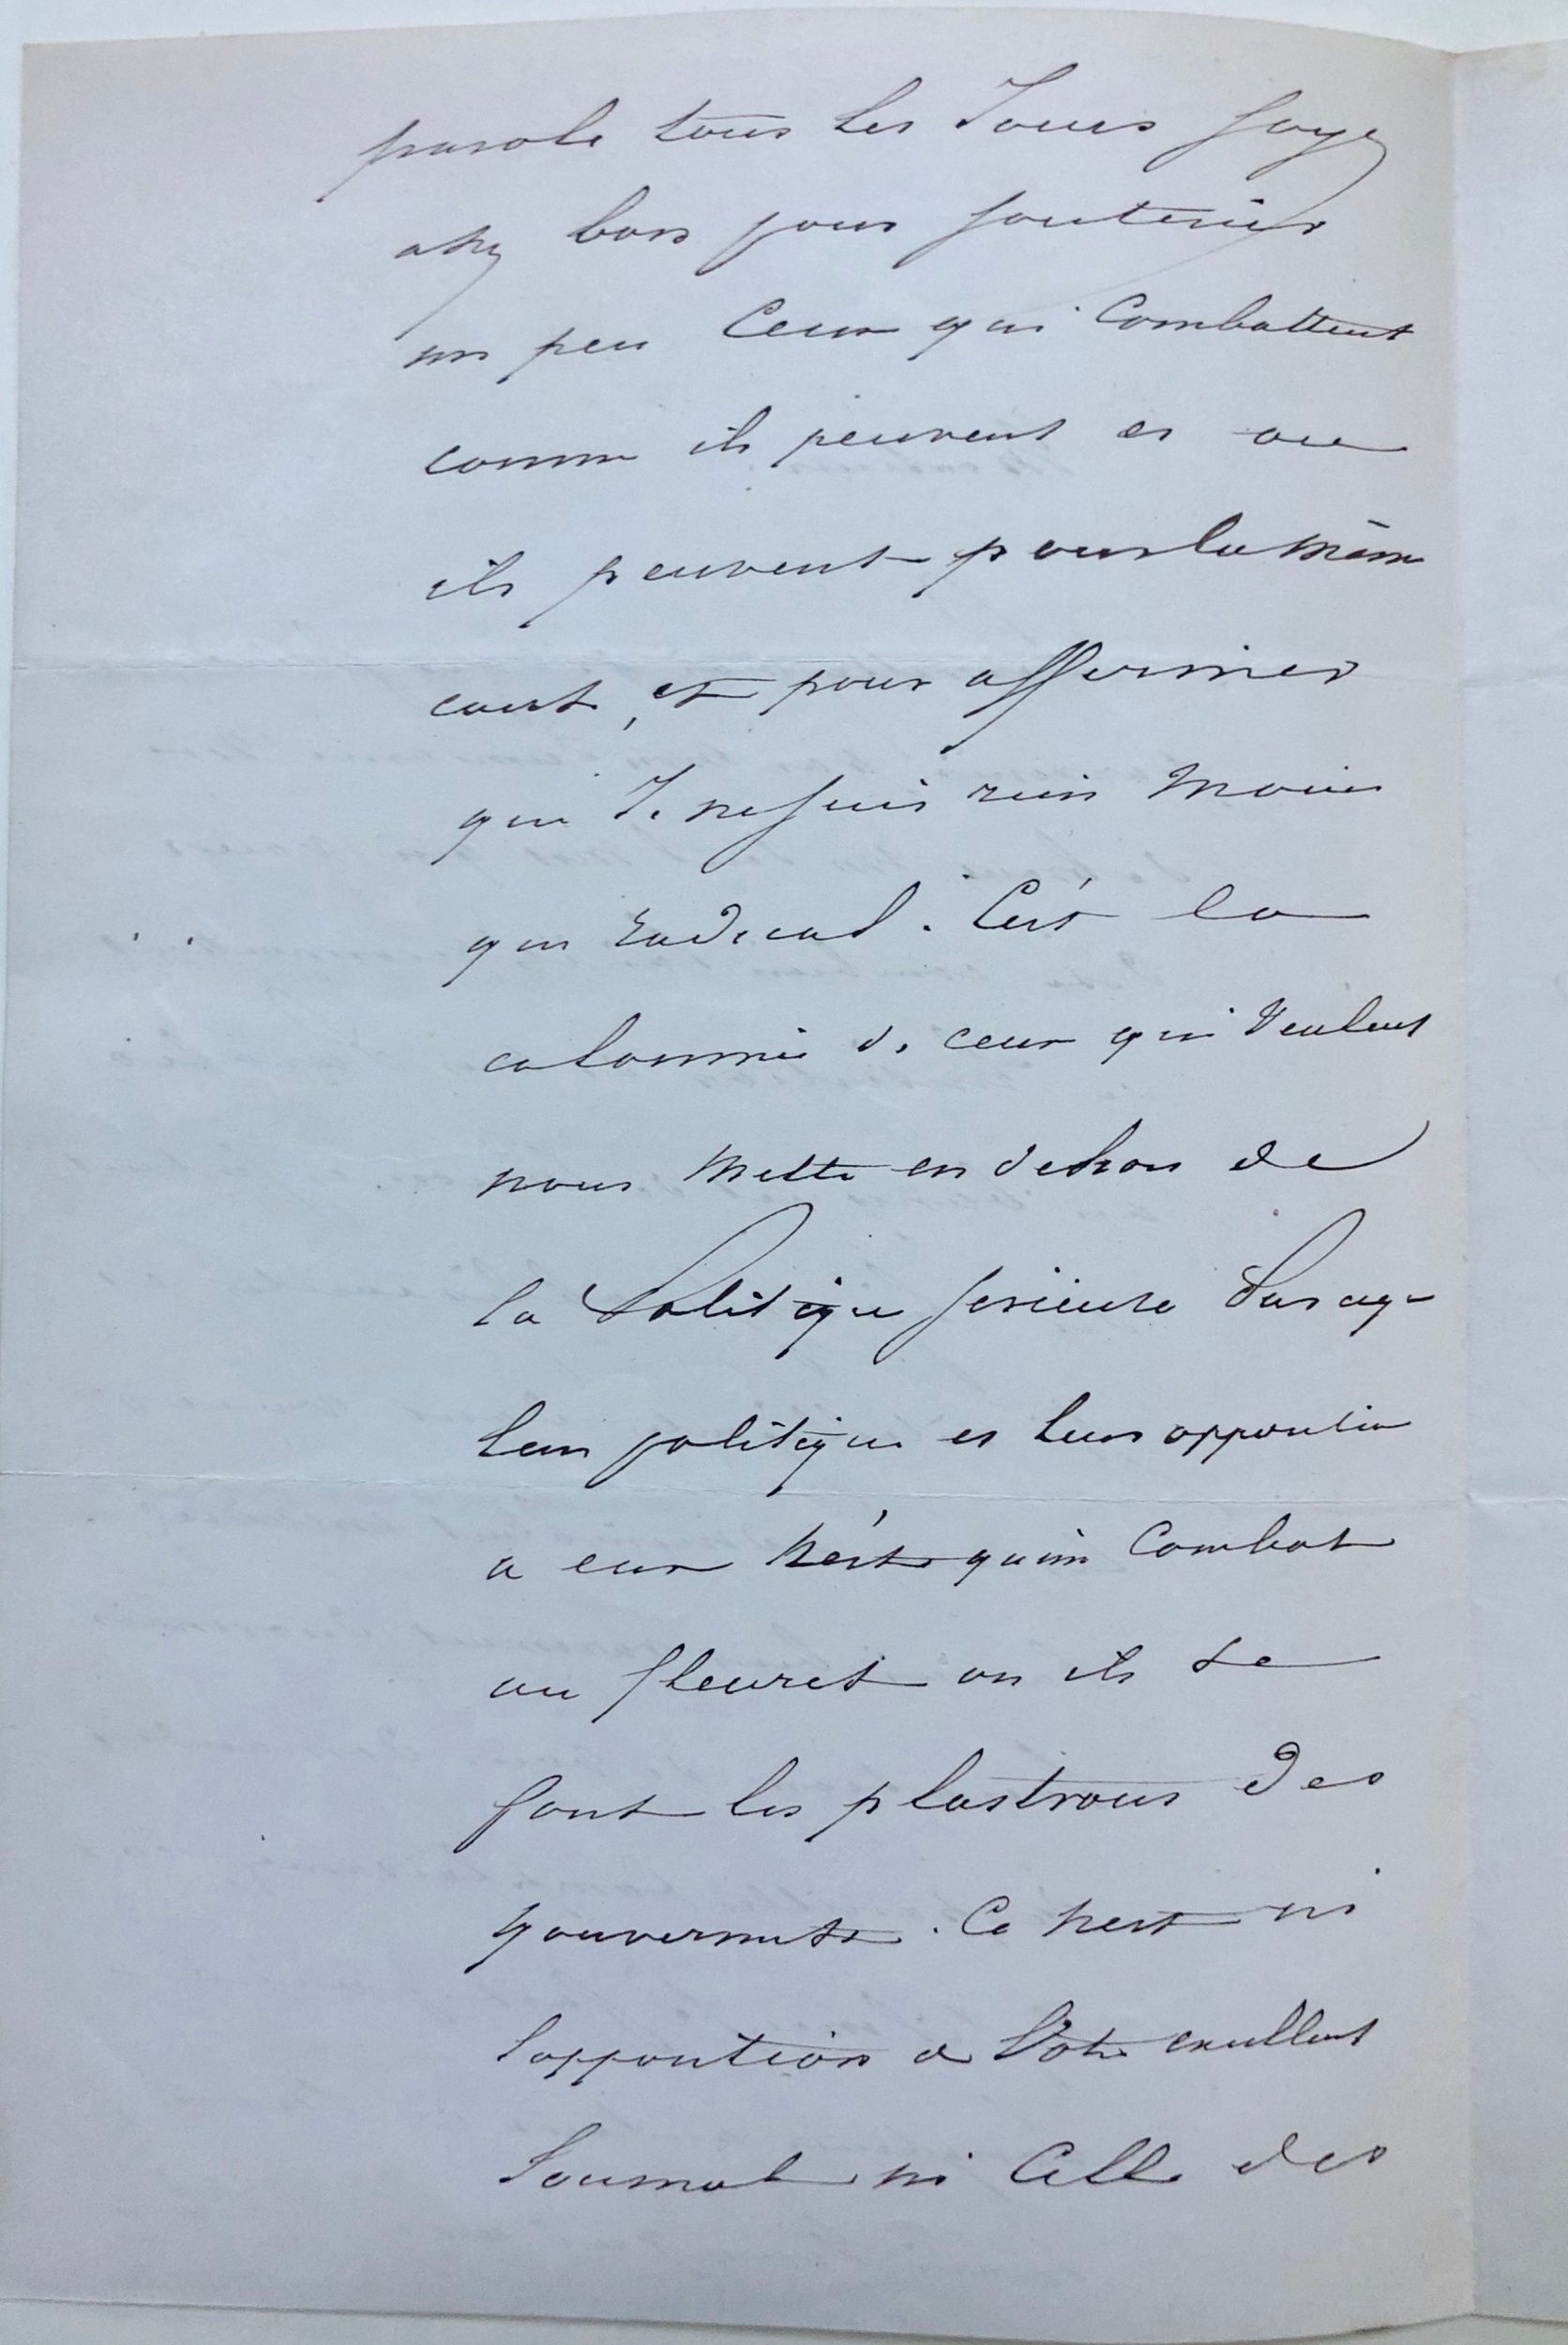 parole tous les Jours soyez
assez bon pour soutenir
un peu Ceux qui Combattent
comme ils peuvent et ou
ils peuvent pour la même
cause, et pour affirmer
que Je ne suis rien Moins
que radical. C'est la
calomnie de ceux qui Veulent
nous Mettre en dehors de
la Politique serieuse
leur politique et leur opposition
a eux N'est qu'un Combat
au fleuret ou ils se
font les plastrons des
gouvernants. Ce n'est ni
l'opposition de Votre excellent
Journal ni Celle des